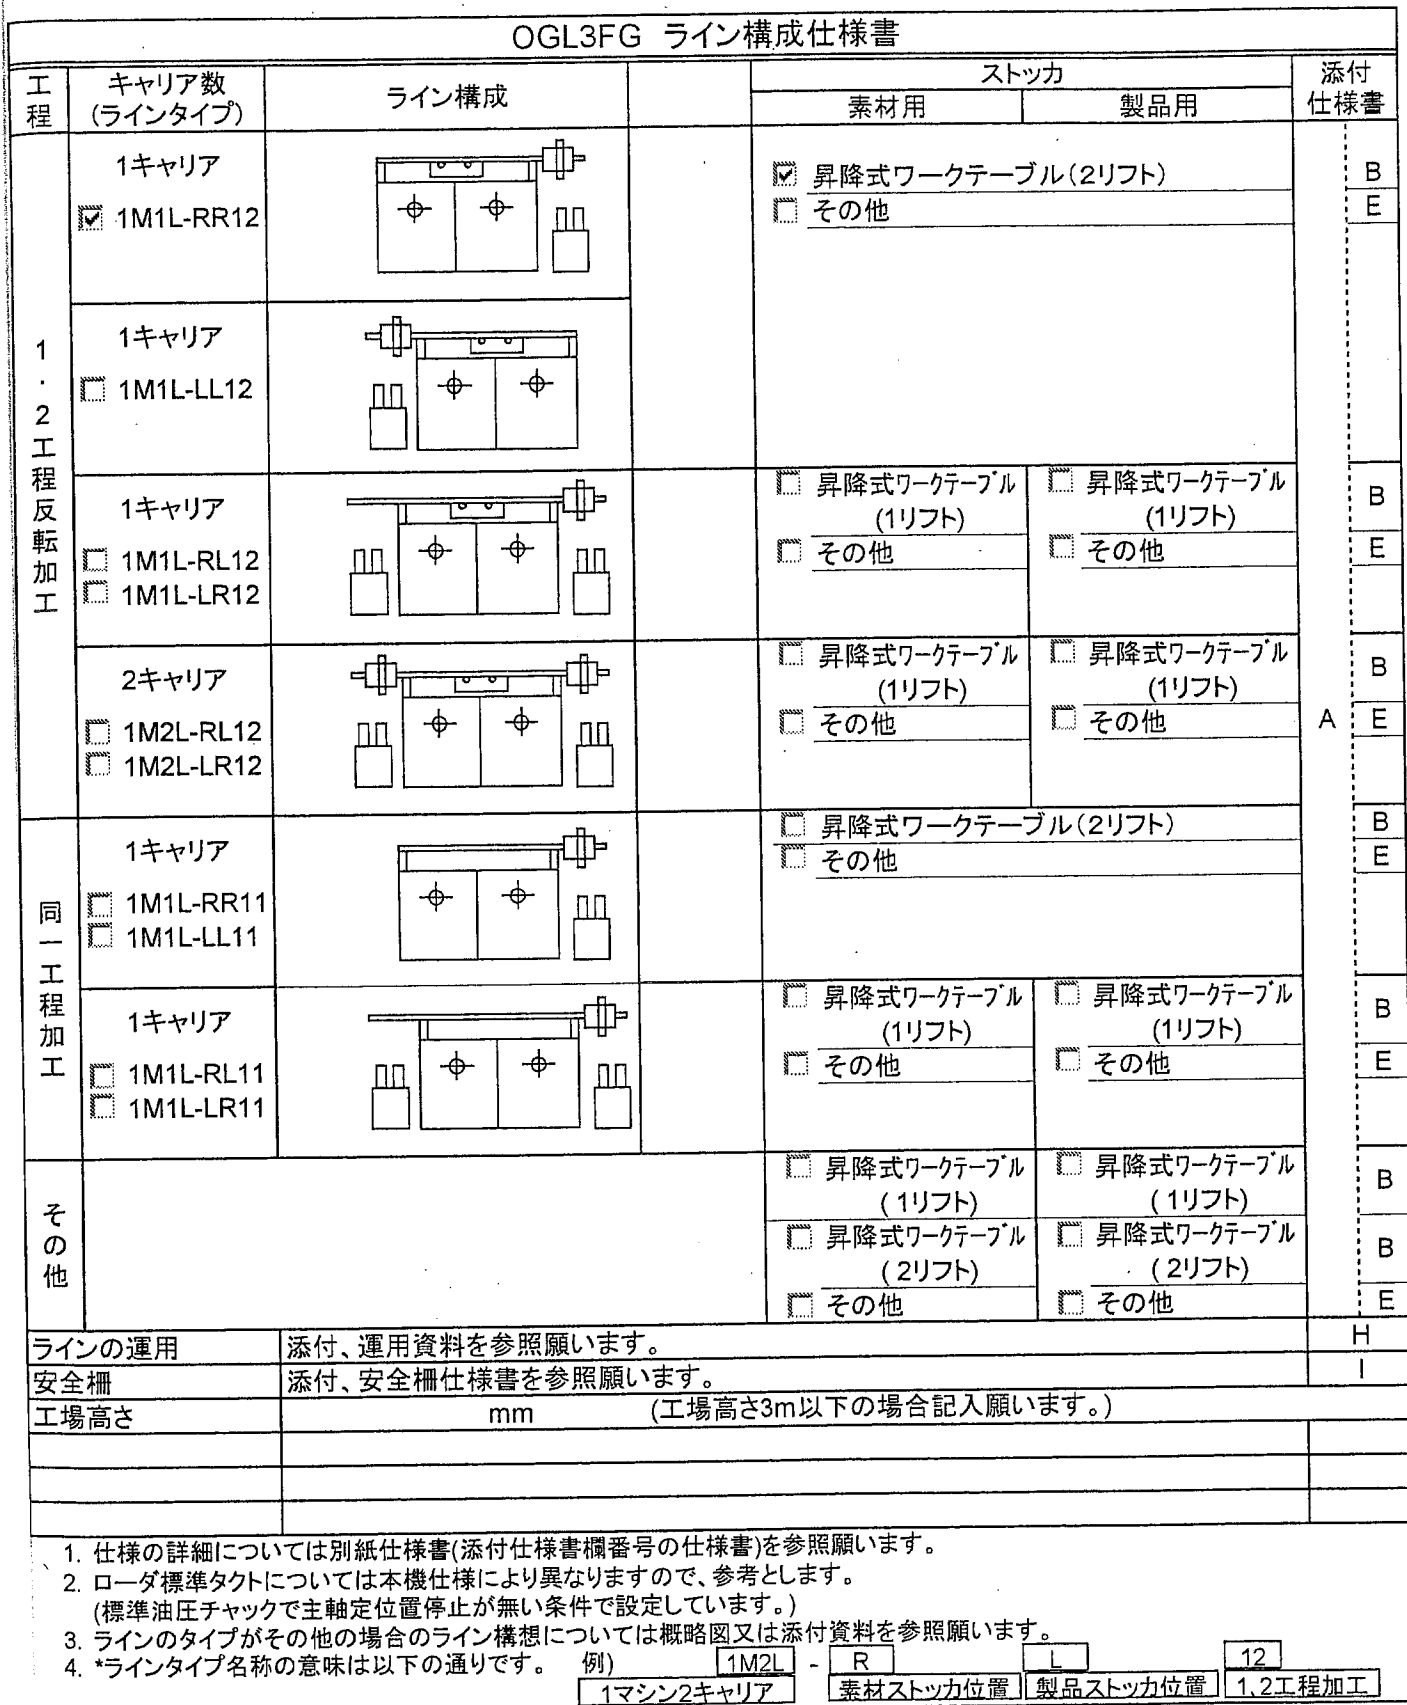 OGL3FG ライン構成仕様書
工程
キャリア数
(ラインタイプ)
ライン構成
ストッカ
素材用
製品用
添付
仕様書
1・2工程反転加工
1キャリア
1M1L-RR12
昇降式ワークテーブル(2リフト)
B
その他
E
1キャリア
1M1L-LL12
1キャリア
1M1L-RL12
1M1L-LR12
昇降式ワークテーブル
(1リフト)
その他
昇降式ワークテーブル
(1リフト)
その他
B
E
2キャリア
1M2L-RL12
1M2L-LR12
昇降式ワークテーブル
(1リフト)
その他
昇降式ワークテーブル
(1リフト)
その他
A
B
E
同一工程加工
1キャリア
1M1L-RR11
1M1L-LL11
昇降式ワークテーブル(2リフト)
B
その他
E
1キャリア
1M1L-RL11
1M1L-LR11
昇降式ワークテーブル
(1リフト)
その他
昇降式ワークテーブル
(1リフト)
その他
B
E
その他
昇降式ワークテーブル
(1リフト)
昇降式ワークテーブル
(1リフト)
B
昇降式ワークテーブル
(2リフト)
昇降式ワークテーブル
(2リフト)
B
その他
その他
E
ラインの運用 添付、運用資料を参照願います。 H
安全柵 添付、安全柵仕様書を参照願います。 I
工場高さ mm (工場高さ3m以下の場合記入願います。)
1. 仕様の詳細については別紙仕様書(添付仕様書欄番号の仕様書)を参照願います。
2. ローダ標準タクトについては本機仕様により異なりますので、参考とします。
(標準油圧チャックで主軸定位置停止が無い条件で設定しています。)
3. ラインのタイプがその他の場合のライン構想については概略図又は添付資料を参照願います。
4. *ラインタイプ名称の意味は以下の通りです。 例) 1M2L - R L 12
1マシン2キャリア 素材ストッカ位置 製品ストッカ位置 1,2工程加工